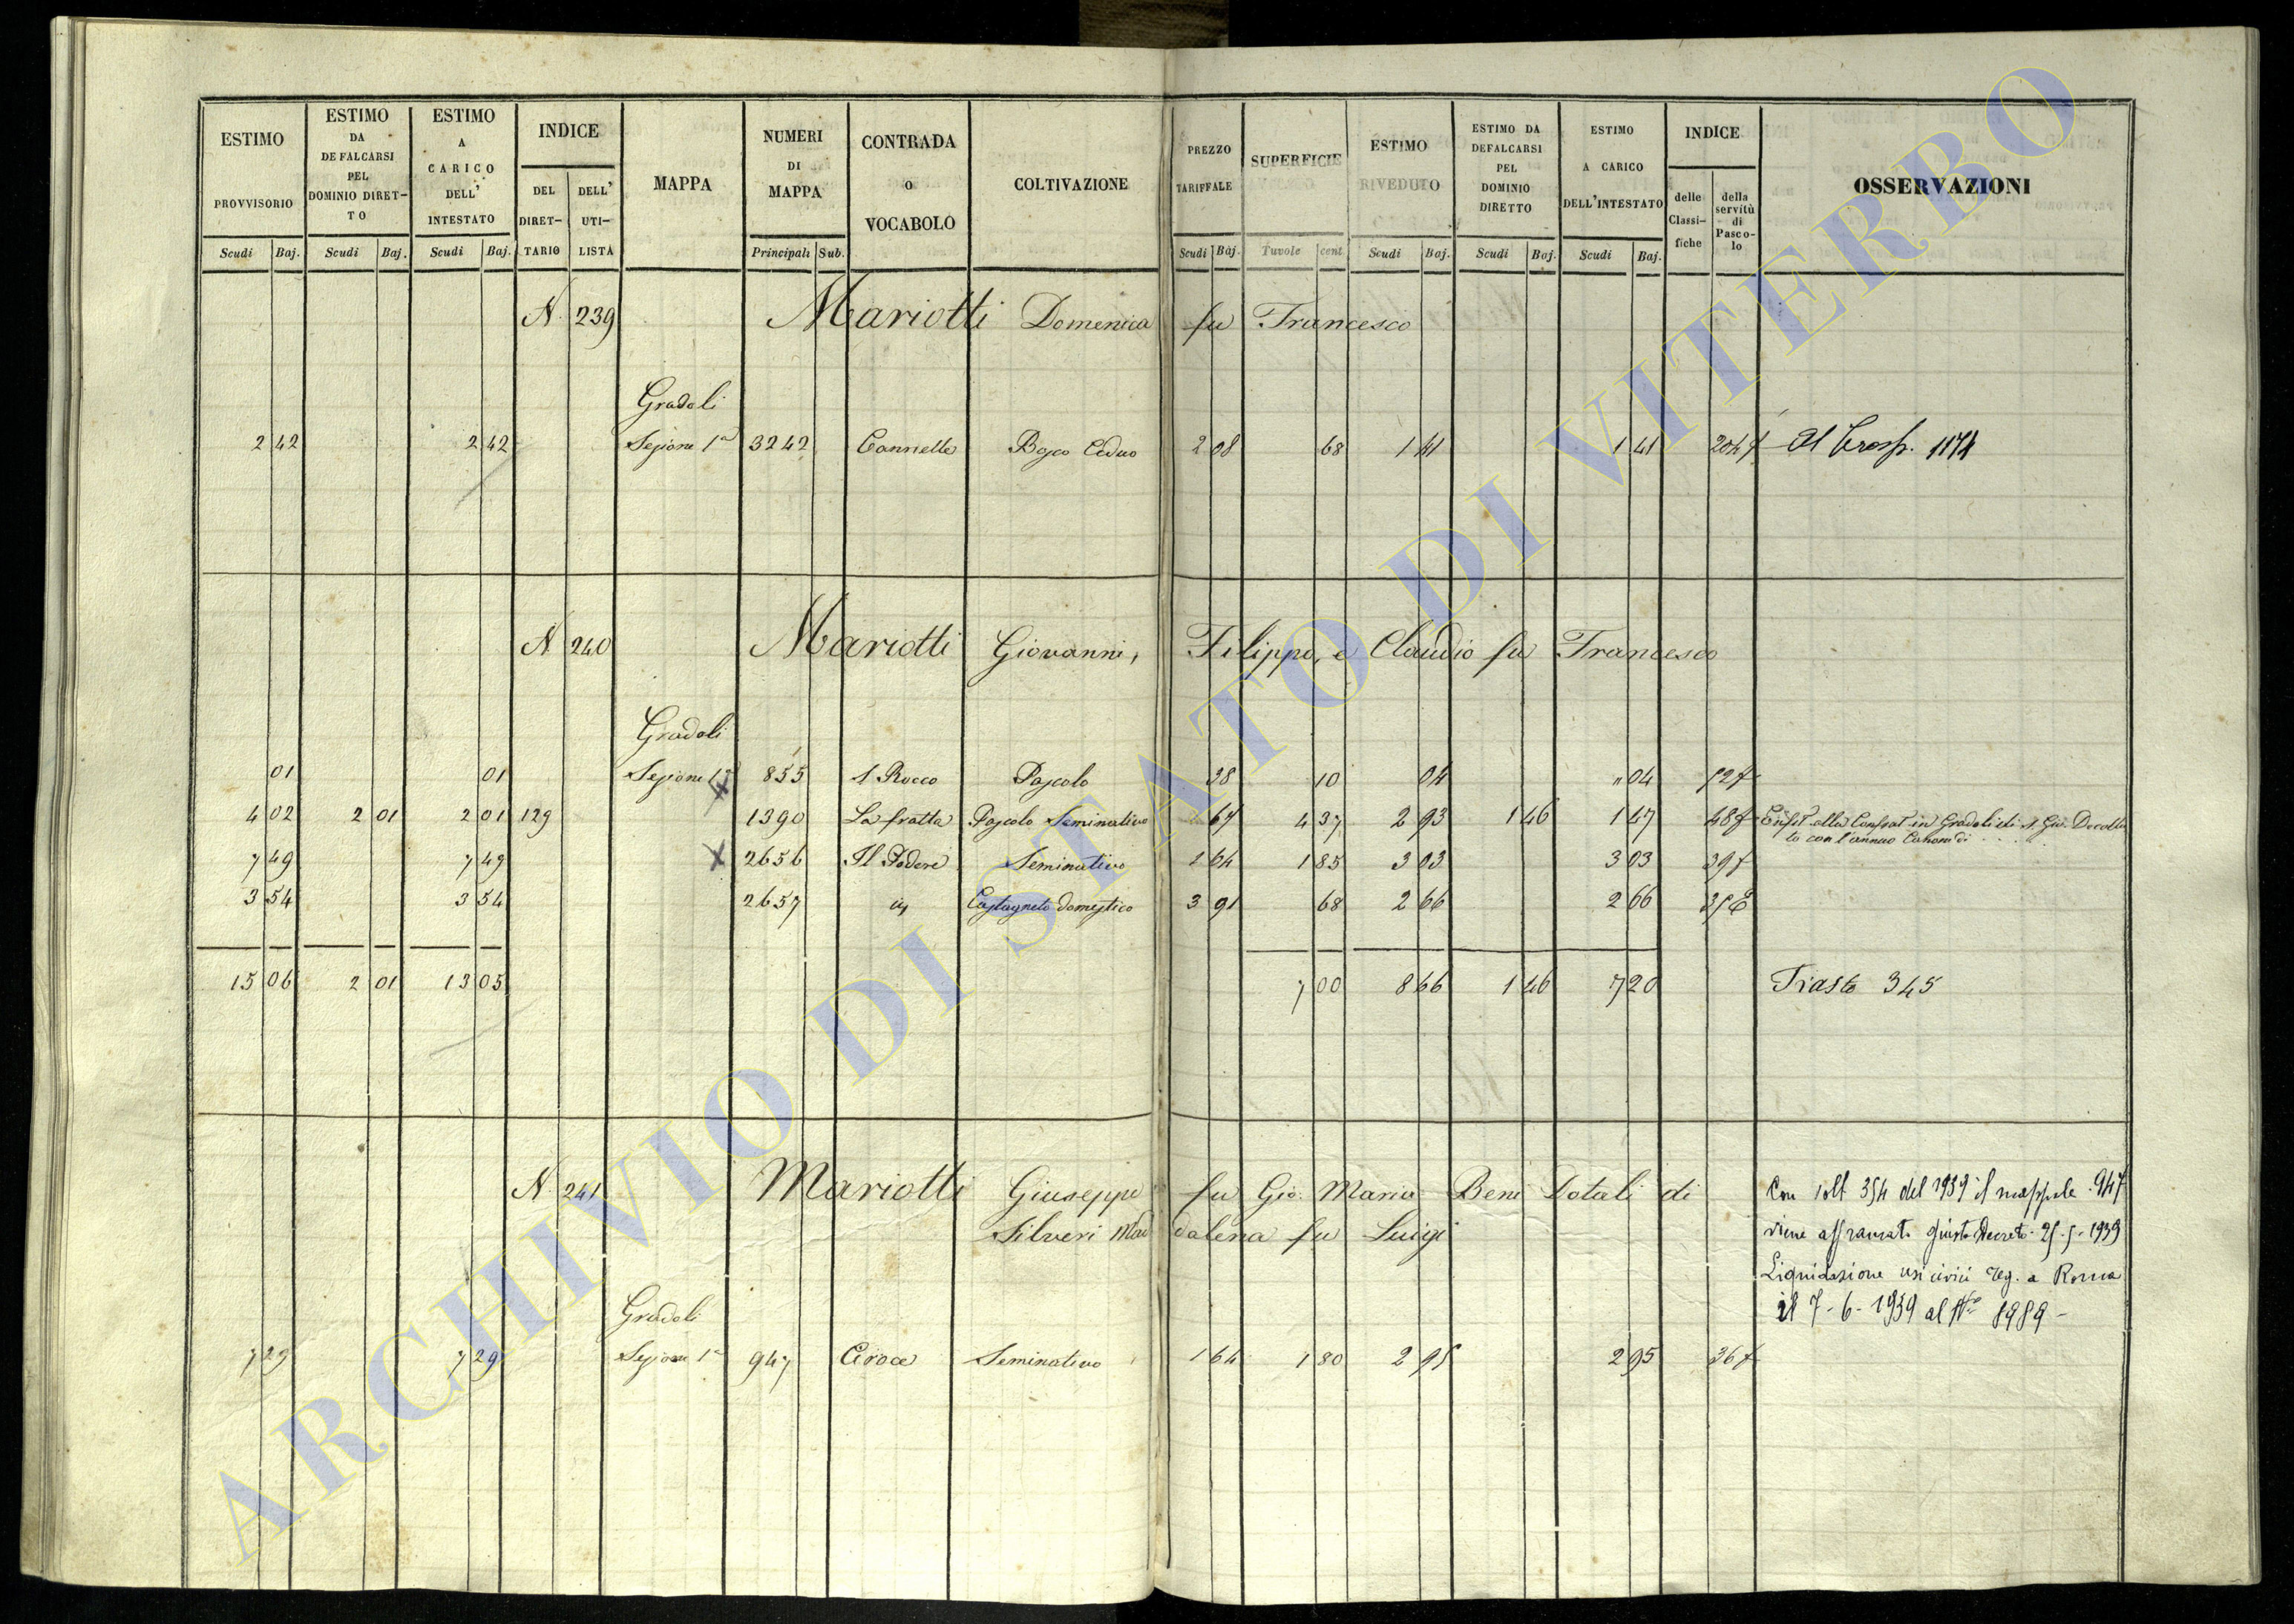 ESTIMO PROVVISORIO Scudi Baj.
ESTIMO DA DEFALCARSI PEL DOMINIO DIRET-TO Scudi Baj.
ESTIMO A CARICO DELL' INTESTATO Scudi Baj.
INDICE DEL DIRET-TARIO DELL' UTI-LISTA
MAPPA
NUMERI DI MAPPA Principali Sub.
CONTRADA O VOCABOLO
COLTIVAZIONE
PREZZO TARIFFALE Scudi Baj.
SUPERFICIE Tavole cent.
ESTIMO RIVEDUTO Scudi Baj.
ESTIMO DA DEFALCARSI PEL DOMINIO DIRETTO Scudi Baj.
ESTIMO A CARICO DELL'INTESTATO Scudi Baj.
INDICE delle Classi-fiche della servitù di Pasco-lo
OSSERVAZIONI
N. 239 Mariotti Domenica fu Francesco
Gradoli
2 42 2 42 Sezione 1a 3242 Cannelle Bosco Ceduo 2 08 68 1 41 1 41
N 240 Mariotti Giovanni, Filippo, e Claudio fu Francesco
Gradoli
01 01 Sezione 1a 855 S Rocco Pascolo 38 10 04 " 04
4 02 2 01 2 01 129 1390 La fratta Pascolo Seminativo 67 4 37 2 93 1 46 1 47 Enfit alla Confrat in Gradoli di S. Gio. Decolla
to con l'annuo Canone di . . . .
7 49 7 49 X 2656 Il Podere Seminativo 1 64 1 85 3 03 3 03
3 54 3 54 2657 Castagneto domestico 3 91 68 2 66 2 66
15 06 2 01 13 05 7 00 8 66 1 46 7 20 Trasto 345
N. 241 Mariotti Giuseppe fu Gio. Maria Beni Dotali di
Silveri Maddalena fu Luigi
Con volt 354 del 1939 il mappale 947
viene affrancato giusto Decreto 25-5-1939
Liquidazione usi civici reg. a Roma
il 7-6-1939 al N° 8989 -
Gradoli
7 29 7 29 Sezione 1a 947 Ciroce Seminativo 1 64 1 80 2 95 2 95
ARCHIVIO DI STATO DI VITERBO